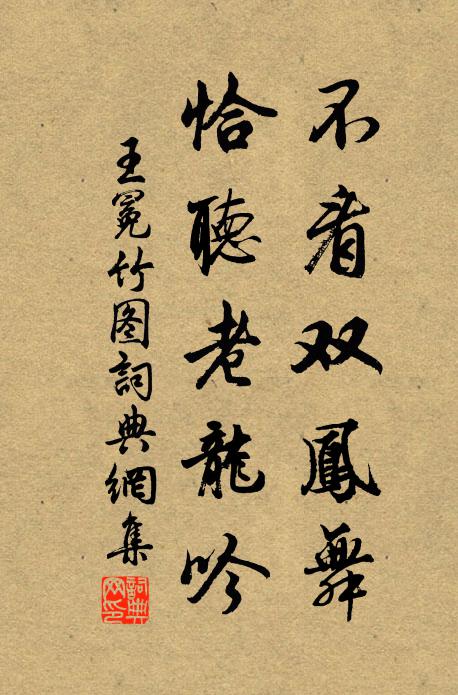 不看双鳳舞
恰聽老龍吟
王冕竹图詞典網集
詞典网印